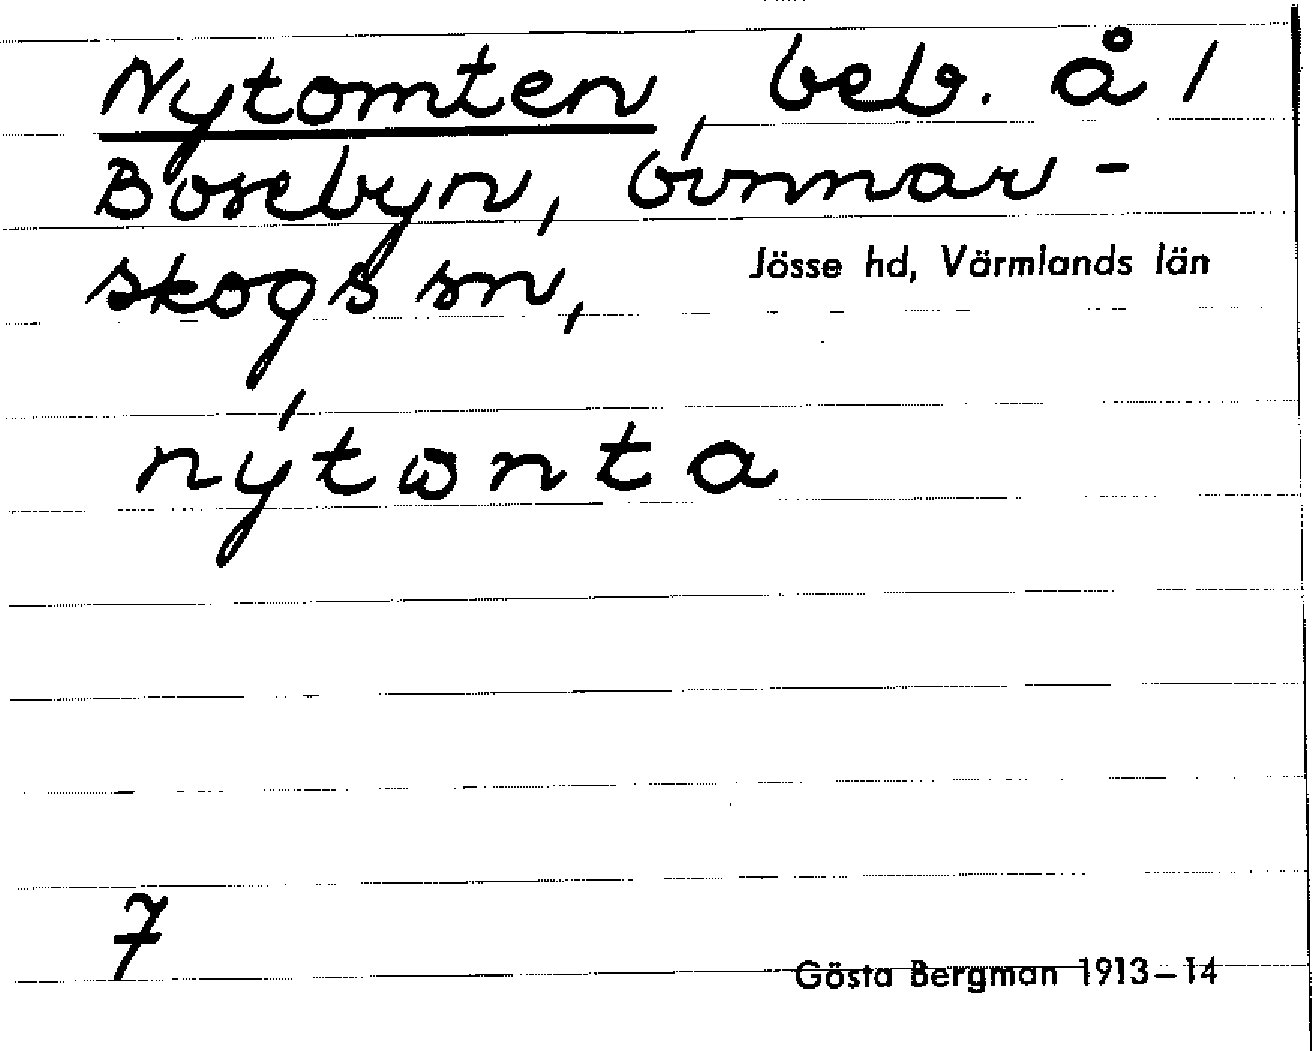 Nytomten, beb. å 1
Bosebyn, Gunnar-
skogs sn,
Jösse hd, Värmlands län
nýtɷnta
7
Gösta Bergman 1913–14